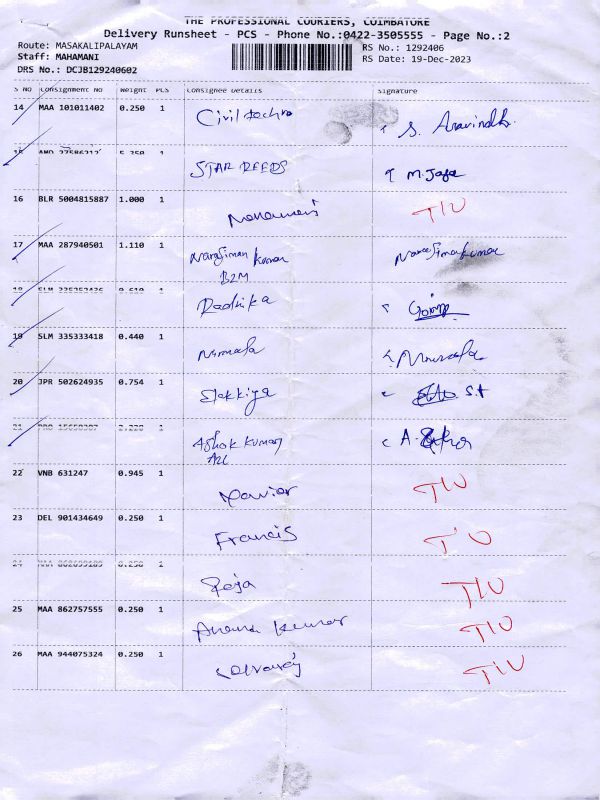 THE PROFESSIONAL COURIERS, COIMBATORE
Delivery Runsheet - PCS - Phone No.:0422-3505555 - Page No.:2
Route: MASAKALIPALAYAM
RS No.: 1292406
Staff: MAHAMANI
RS Date: 19-Dec-2023
DRS No.: DCJB129240602
S NO Consignment No Weight PCS Consignee Details Signature
14 MAA 101011402 0.250 1 S. Aravindh
15 1 STAR REEDS M. Jafa
16 BLR 5004815887 1.000 1 TIU
17 MAA 287940501 1.110 1 Narasiman kumar
B2M
1 Radhika
19 SLM 335333418 0.440 1
20 JPR 502624935 0.754 1 Elakkiya S.t
21 1 Ashok kumar
22 VNB 631247 0.945 1 Xavior TIU
23 DEL 901434649 0.250 1 Francis TIU
24 1 Roja TIU
25 MAA 862757555 0.250 1 Anand kumar TIU
26 MAA 944075324 0.250 1 TIU